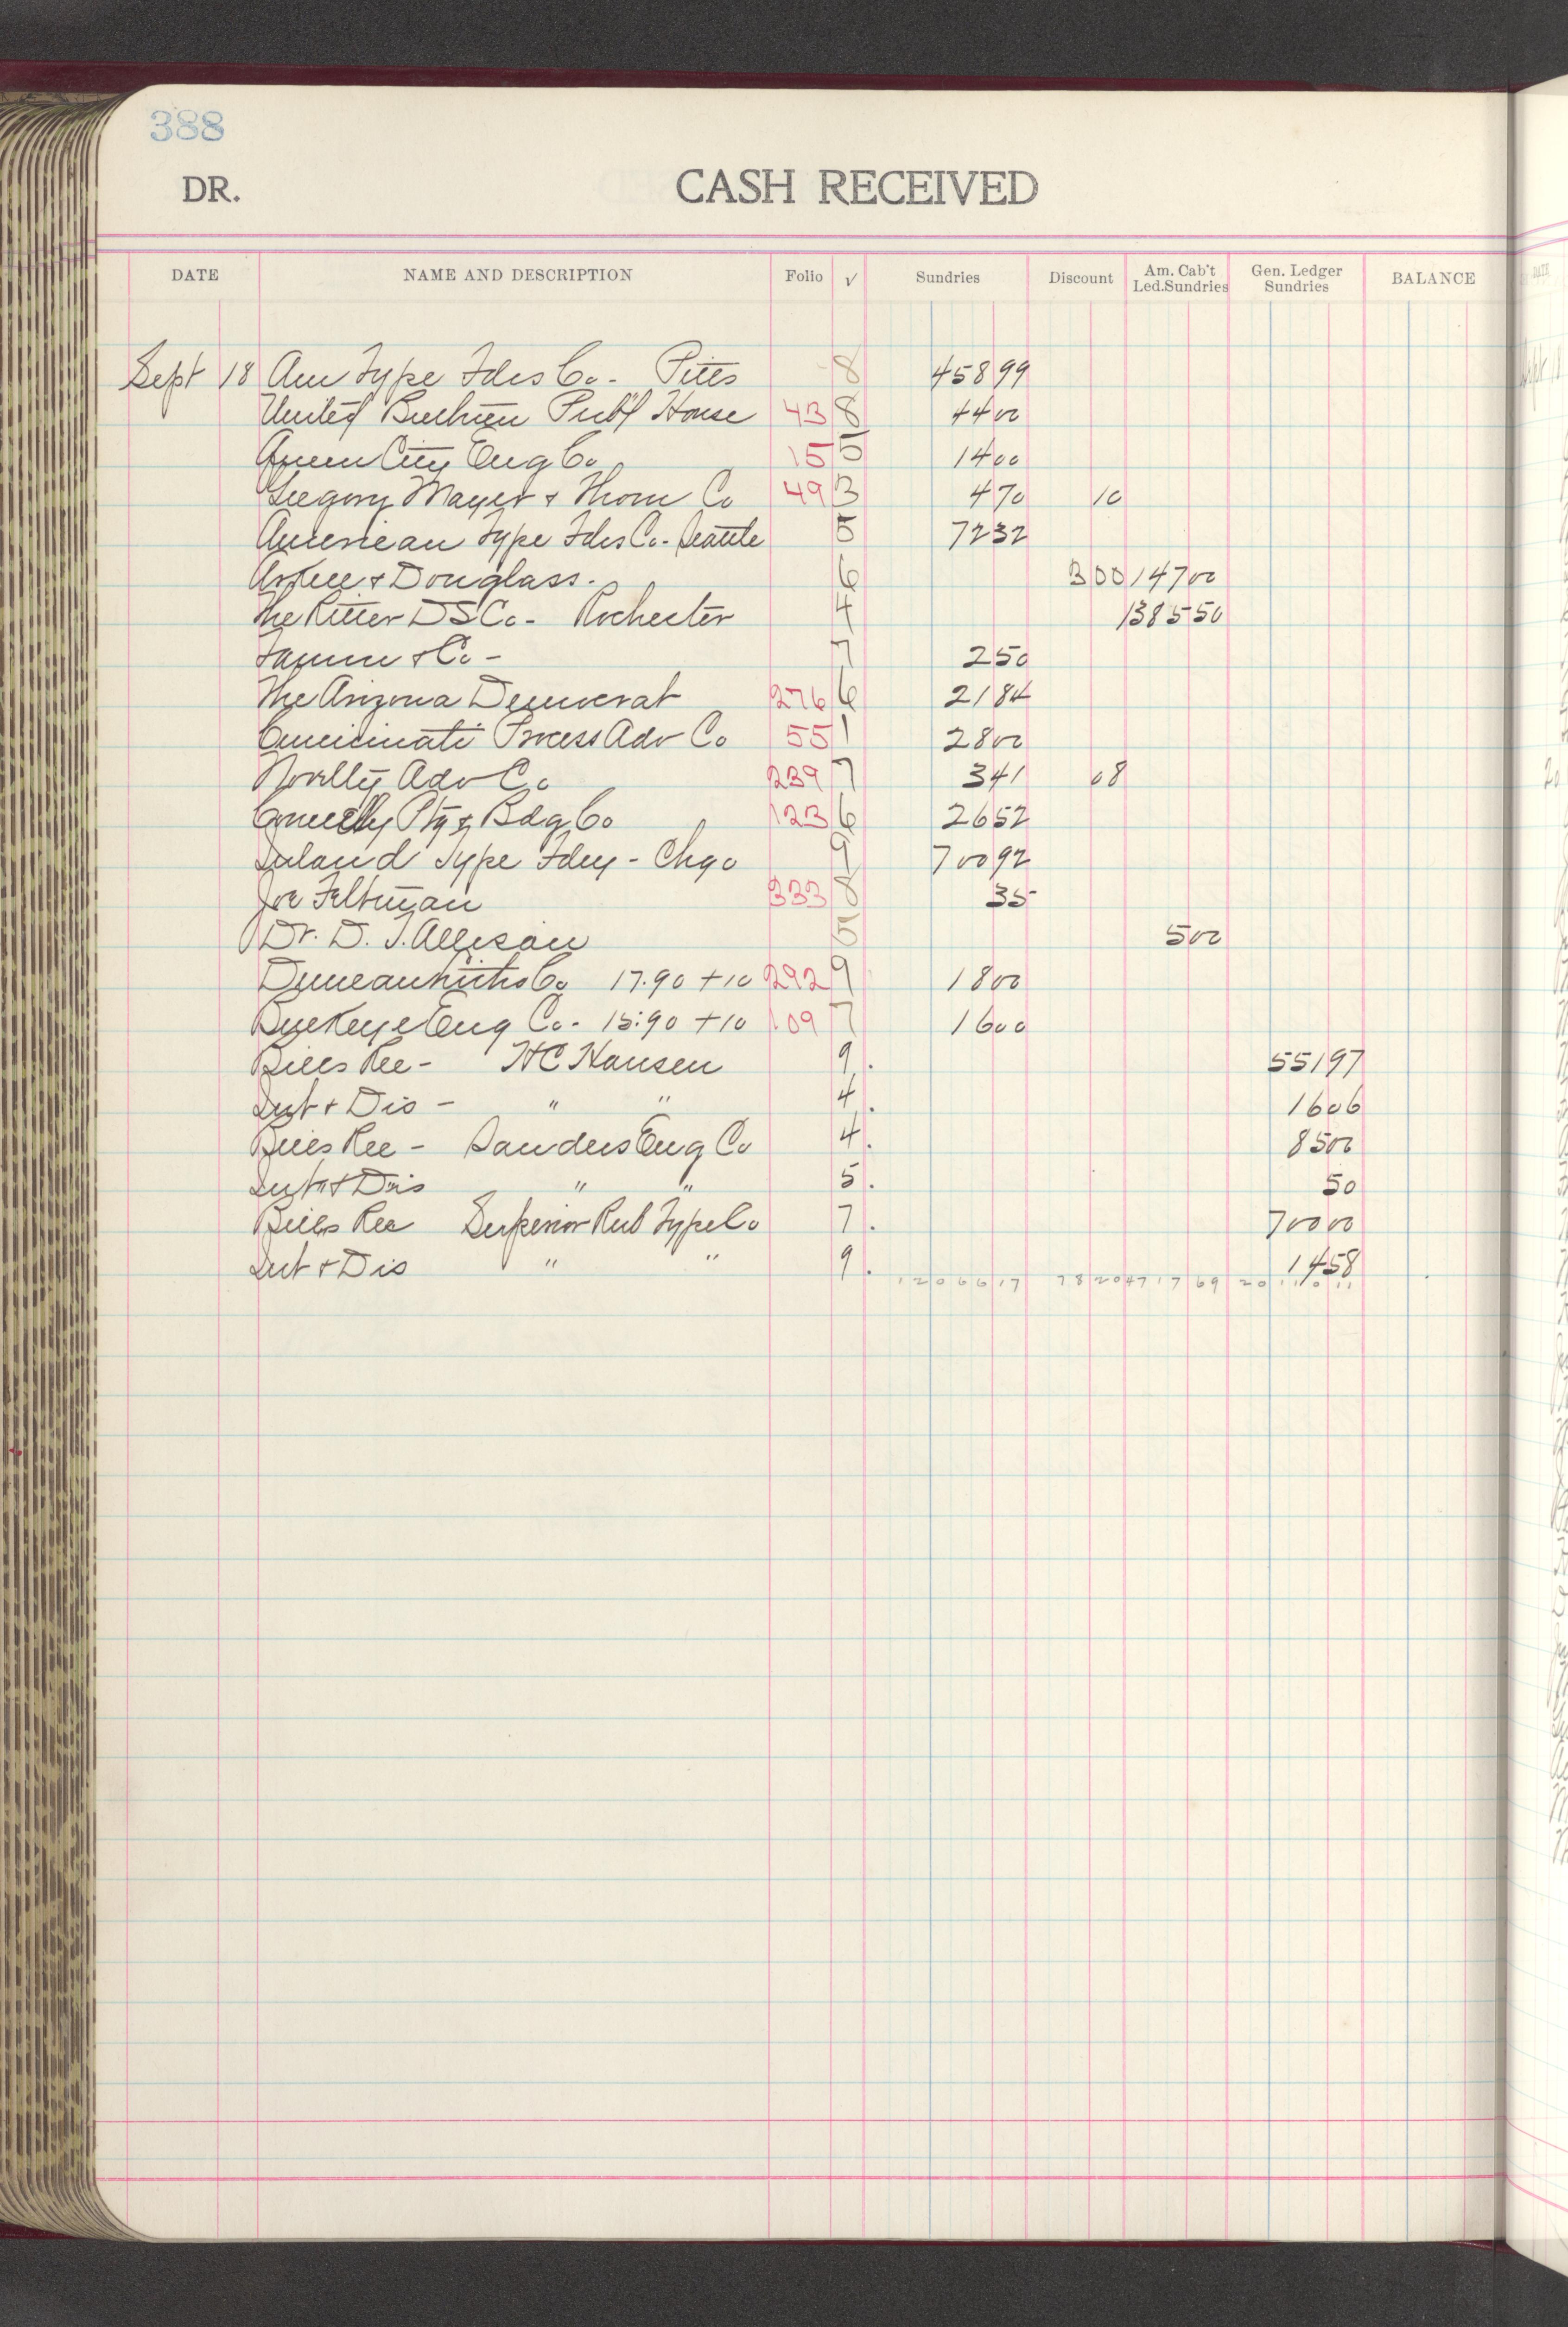 388
DR. CASH RECEIVED
DATE NAME AND DESCRIPTION Folio √ Sundries Discount Am. Cab't Led. Sundries Gen. Ledger Sundries BALANCE
Sept 18 Am Type Fdrs Co - Pitts 8 458 99
United Brethren Pub'l House 43 8 44 00
Queen City Eng Co 15 5 14 00
Gregory Mayer & Thom Co 49 3 4 70 10
American Type Fdrs Co - Seattle 5 72 32
& Douglass. 6 3 00 147 00
The Ritter DS Co - Rochester 4 1385 50
& Co - 7 2 50
The Arizona Democrat 276 6 21 84
Cincinnati Process Adv Co 55 1 28 00
Novelty Adv Co 239 7 3 41 08
Ptg & Bdg Co 123 6 26 52
Inland Type Fdry - Chgo 9 700 92
Joe Feltman 333 8 35
Dr. D. J. Allison 5 5 00
Duncan Litho Co 17.90 + 10 292 9 18 00
Buckeye Eng Co - 15.90 + 10 109 7 16 00
Bills Rec - HC Hansen 9. 551 97
Int & Dis - " " 4. 16 06
Bills Rec - Sanders Eng Co 4. 85 00
Int & Dis " " 5. 50
Bills Rec Superior Rub Type Co 7. 700 00
Int & Dis " " 9. 14 58